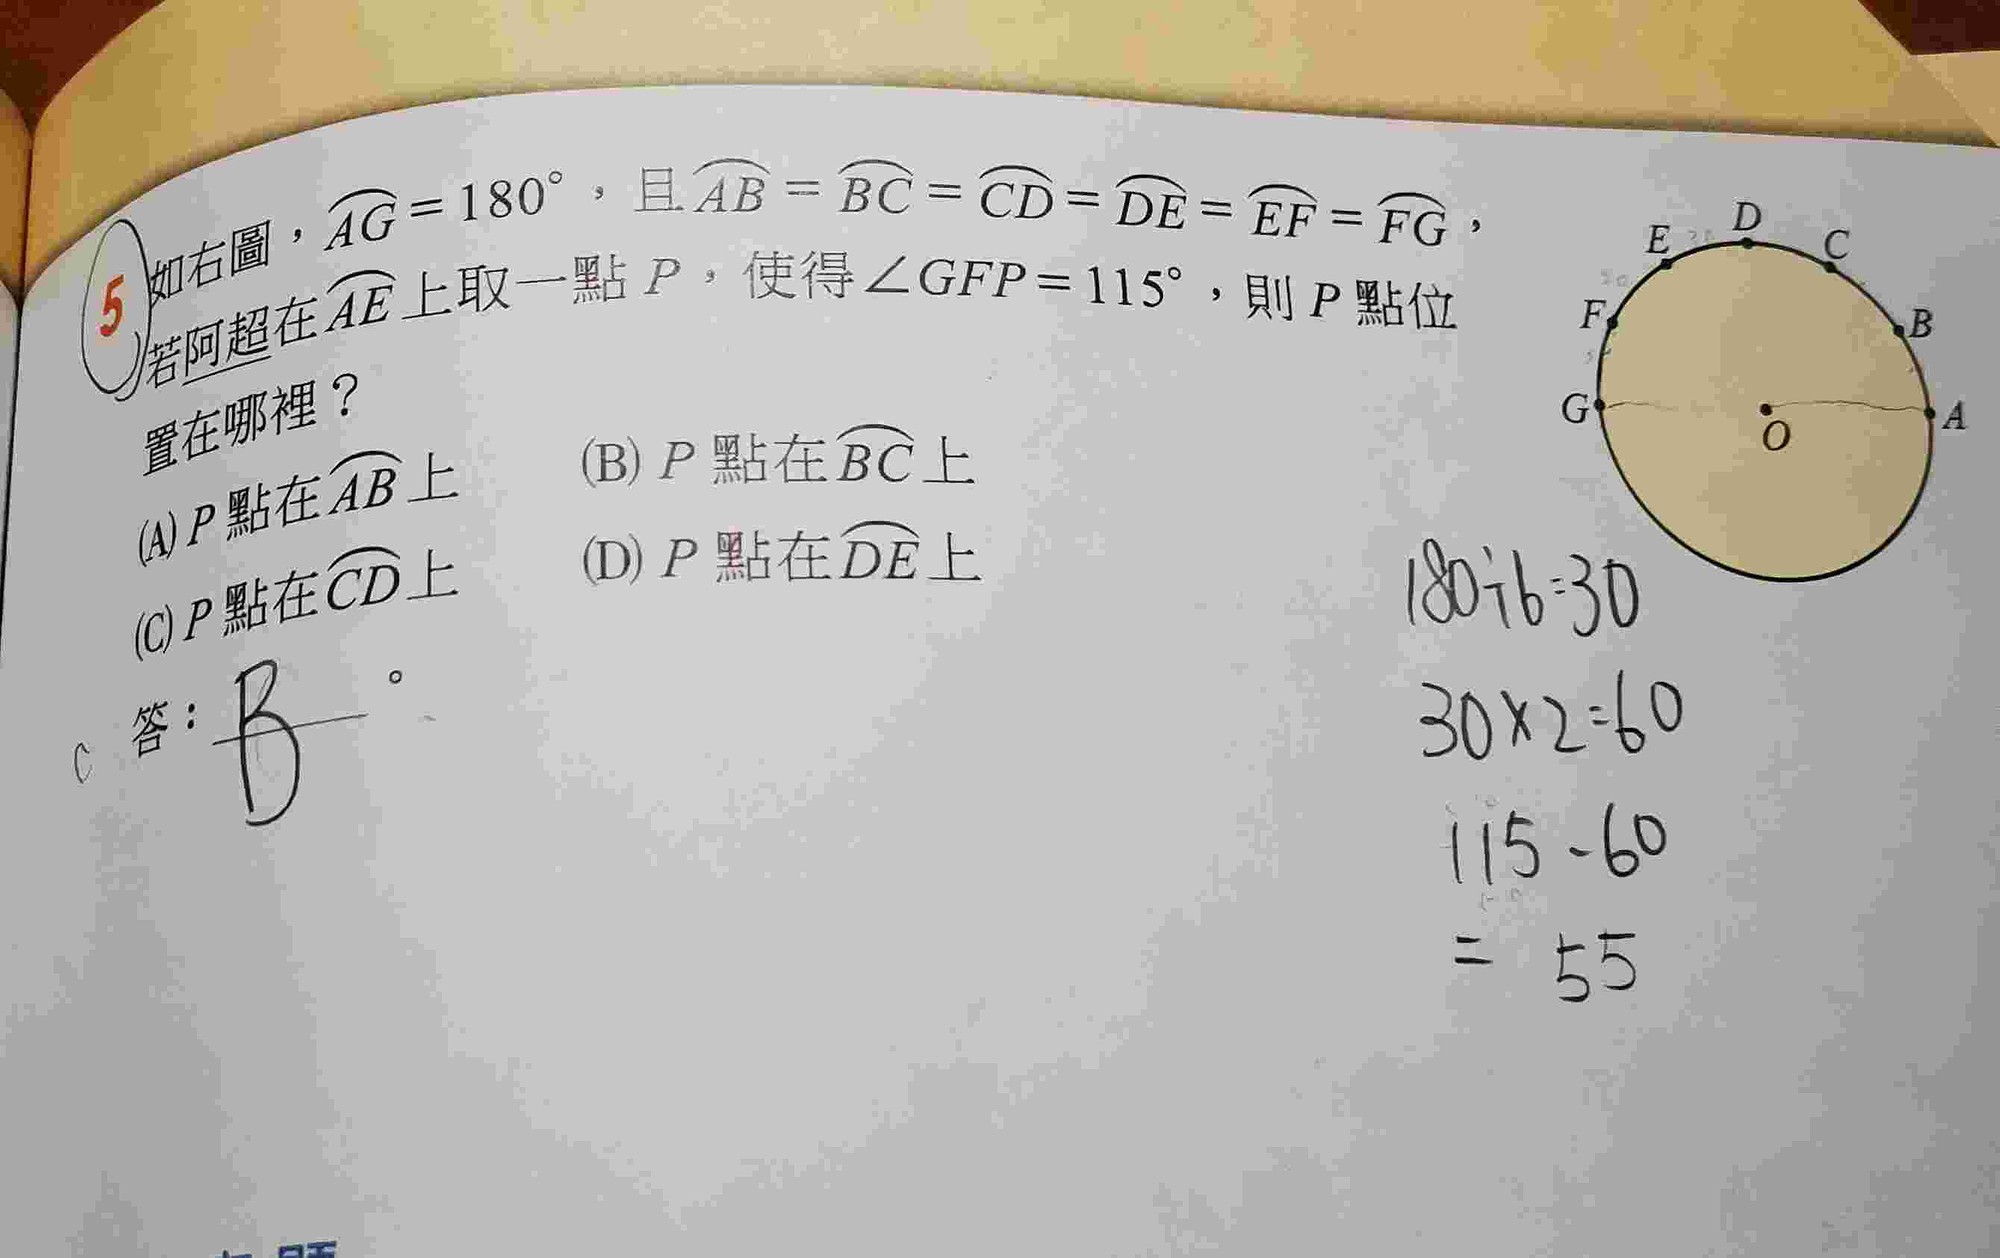 5 如右圖，AG=180°，且AB=BC=CD=DE=EF=FG，
若阿超在AE上取一點P，使得∠GFP=115°，則P點位
置在哪裡？
(A) P點在AB上 (B) P點在BC上
(C) P點在CD上 (D) P點在DE上
答：B。
C
D
E
C
F
B
G
A
O
180÷6=30
30×2=60
115-60
= 55